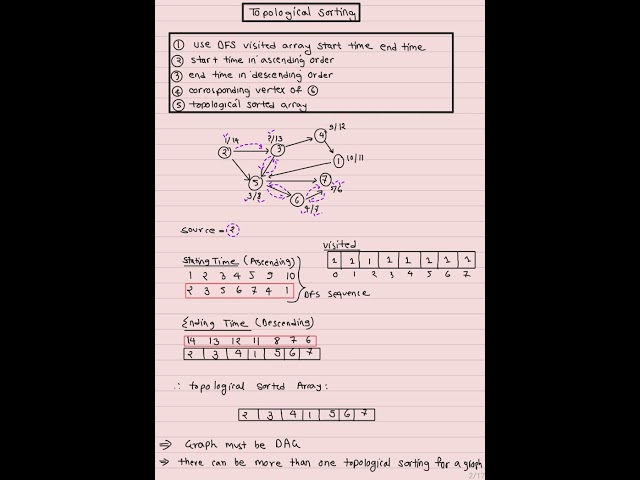 Topological Sorting
① use DFS visited array start time end time
② start time in ascending order
③ end time in descending order
④ corrosponding vertex of ⑥
⑤ topological sorted array
9/12
1/14
2/13
4
2
3
1
10/11
5
7
3/8
5/6
6
4/7
source = 2
visited
Stating Time (Ascending)
1 1 1 1 1 1 1 1
1 2 3 4 5 9 10
0 1 2 3 4 5 6 7
2 3 5 6 7 4 1
DFS sequence
Ending Time (Descending)
14 13 12 11 8 7 6
2 3 4 1 5 6 7
∴ topological sorted Array:
2 3 4 1 5 6 7
⇒ Graph must be DAG
⇒ there can be more than one topological sorting for a graph
2/17